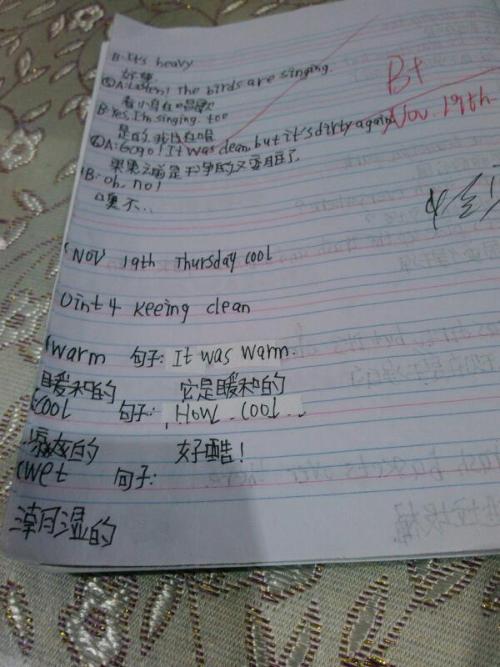 B: It's heavy
好重
③A: Listen! The birds are singing.
看小鸟在唱歌
B: Yes, I'm singing. too
是的,我也在唱
④A: Gogo! It was clean, but it's dirty again.
果果之前是干净的又变脏了
B: Oh, no!
噢不..
B+
Nov. 19th
Nov 19th Thursday cool
Unit 4 keeing clean
warm 句子: It was warm.
暖和的 它是暖和的
cool 句子: How cool..
凉爽的 好酷!
wet 句子:
潮湿的